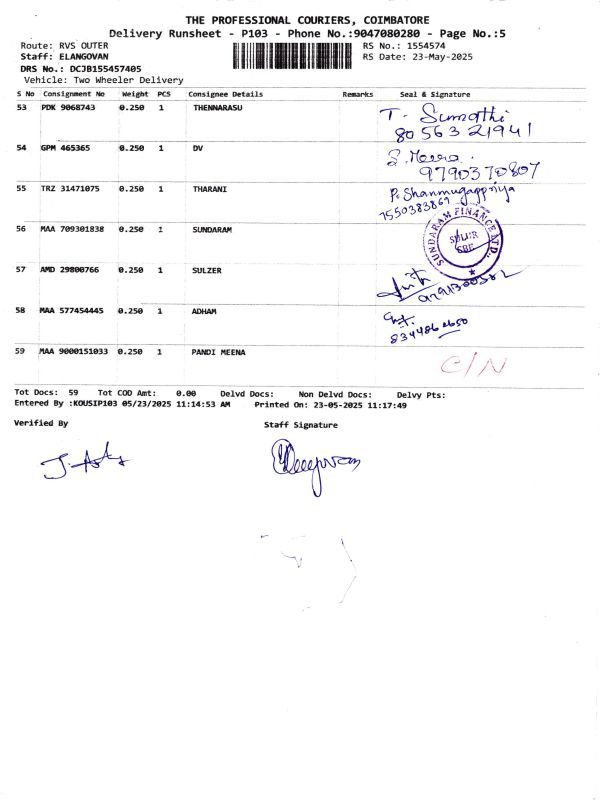 THE PROFESSIONAL COURIERS, COIMBATORE
Delivery Runsheet - P103 - Phone No.:9047080280 - Page No.:5
Route: RVS OUTER
RS No.: 1554574
Staff: ELANGOVAN
RS Date: 23-May-2025
DRS No.: DCJB155457405
Vehicle: Two Wheeler Delivery
S No Consignment No Weight PCS Consignee Details Remarks Seal & Signature
53 PDK 9068743 0.250 1 THENNARASU T. Sumathi
8056321941
54 GPM 465365 0.250 1 DV S. Meera.
9790370807
55 TRZ 31471075 0.250 1 THARANI P. Shanmugappriya
7550383869
56 MAA 709301838 0.250 1 SUNDARAM SUNDARAM FINANCE LTD.,
SULUR
CBE
57 AMD 29800766 0.250 1 SULZER
58 MAA 577454445 0.250 1 ADHAM
59 MAA 9000151033 0.250 1 PANDI MEENA C/N
Tot Docs: 59 Tot COD Amt: 0.00 Delvd Docs: Non Delvd Docs: Delvy Pts:
Entered By :KOUSIP103 05/23/2025 11:14:53 AM Printed On: 23-05-2025 11:17:49
Verified By Staff Signature